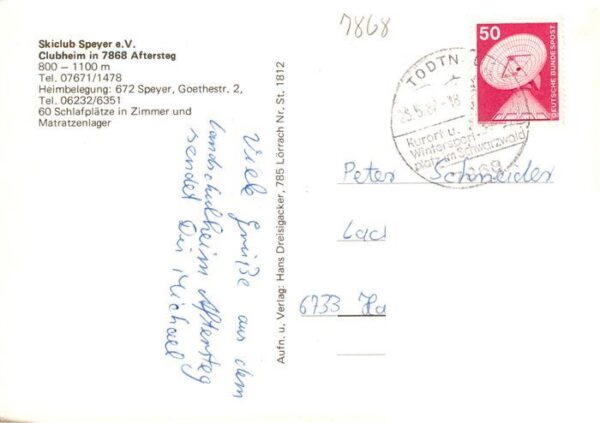 Skiclub Speyer e.V.
Clubheim in 7868 Aftersteg
800 – 1100 m
Tel. 07671/1478
Heimbelegung: 672 Speyer, Goethestr. 2,
Tel. 06232/6351
60 Schlafplätze in Zimmer und
Matratzenlager
Viele Grüße aus dem
Landschulheim Aftersteg
sendet Dir Michael
Aufn. u. Verlag: Hans Dreisigacker, 785 Lörrach Nr. St. 1812
7868
50
DEUTSCHE BUNDESPOST
TODTN
-18
Kurort u.
Wintersport-
platz im Schwarzwald
Peter Schneider
Lad
6733 Ha